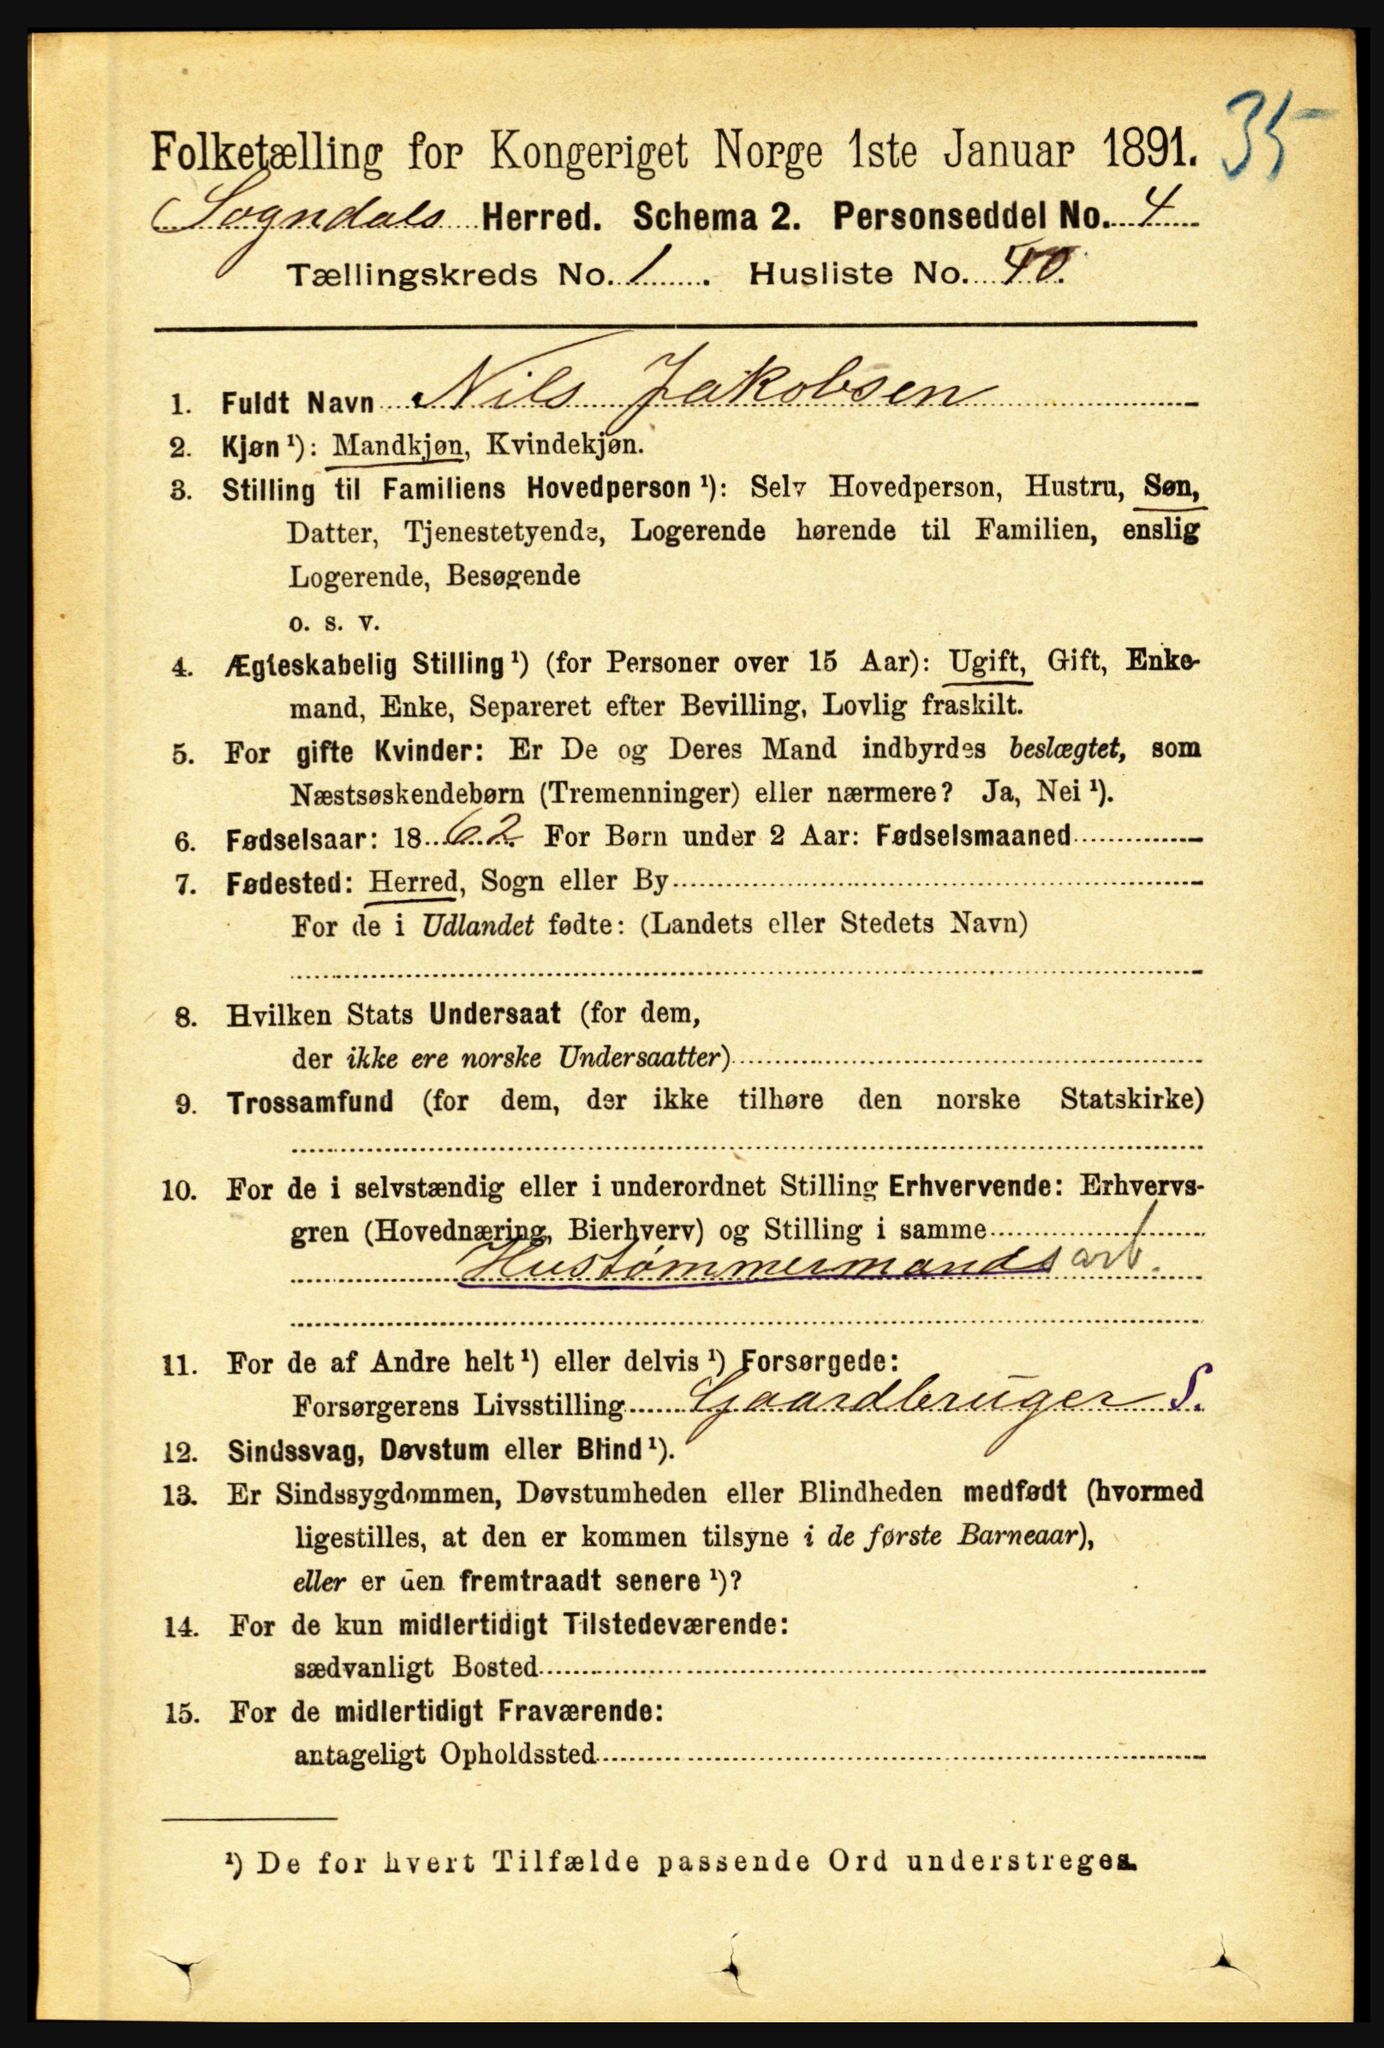 35
Folketælling for Kongeriget Norge 1ste Januar 1891.
Sogndals Herred. Schema 2. Personseddel No. 4
Tællingskreds No. 1. Husliste No. 40.
1. Fuldt Navn Nils Jakobsen
2. Kjøn ¹): Mandkjøn, Kvindekjøn.
3. Stilling til Familiens Hovedperson ¹): Selv Hovedperson, Hustru, Søn,
Datter, Tjenestetyende, Logerende hørende til Familien, enslig
Logerende, Besøgende
o. s. v.
4. Ægteskabelig Stilling ¹) (for Personer over 15 Aar): Ugift, Gift, Enke-
mand, Enke, Separeret efter Bevilling, Lovlig fraskilt.
5. For gifte Kvinder: Er De og Deres Mand indbyrdes beslægtet, som
Næstsøskendebørn (Tremenninger) eller nærmere? Ja, Nei ¹).
6. Fødselsaar: 1862. For Børn under 2 Aar: Fødselsmaaned
7. Fødested: Herred, Sogn eller By
For de i Udlandet fødte: (Landets eller Stedets Navn)
8. Hvilken Stats Undersaat (for dem,
der ikke ere norske Undersaatter)
9. Trossamfund (for dem, der ikke tilhøre den norske Statskirke)
10. For de i selvstændig eller i underordnet Stilling Erhvervende: Erhvervs-
gren (Hovednæring, Bierhverv) og Stilling i samme
Hustømmermands arb.
11. For de af Andre helt ¹) eller delvis ¹) Forsørgede:
Forsørgerens Livsstilling Gaardbruger S.
12. Sindssvag, Døvstum eller Blind ¹).
13. Er Sindssygdommen, Døvstumheden eller Blindheden medfødt (hvormed
ligestilles, at den er kommen tilsyne i de første Barneaar),
eller er den fremtraadt senere ¹)?
14. For de kun midlertidigt Tilstedeværende:
sædvanligt Bosted
15. For de midlertidigt Fraværende:
antageligt Opholdssted
¹) De for hvert Tilfælde passende Ord understreges.